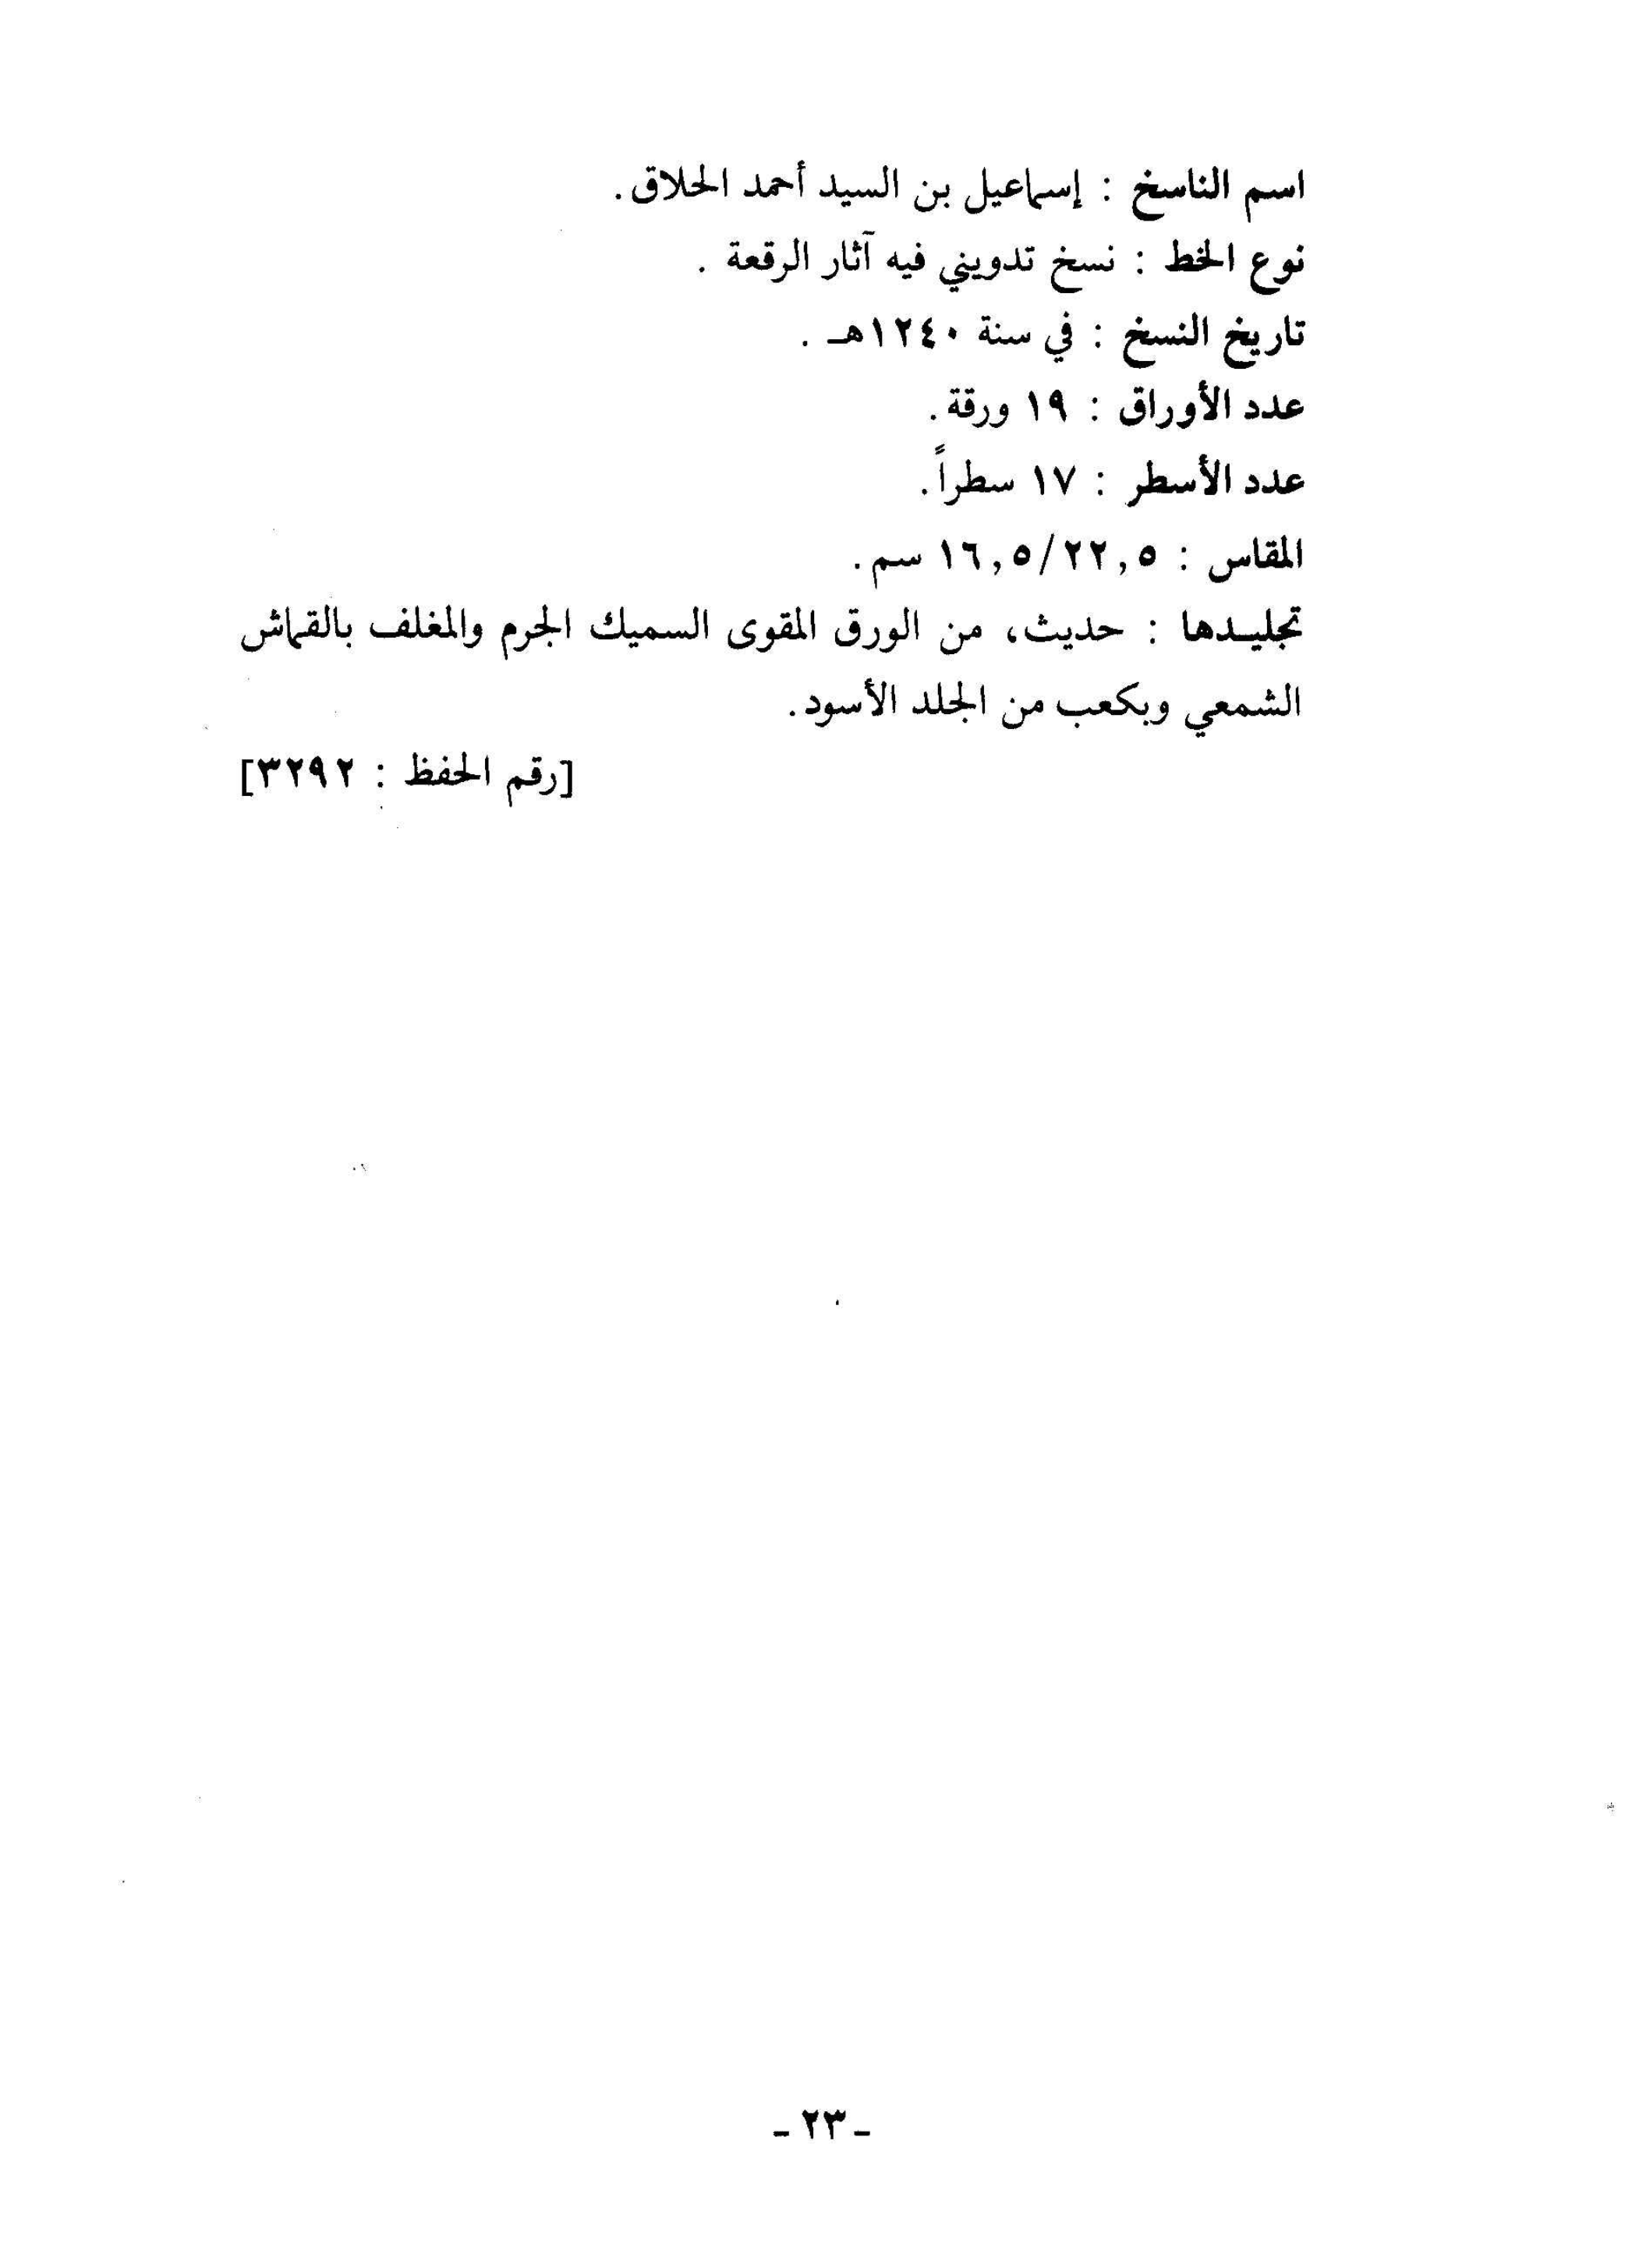 اسم الناسخ : إسماعيل بن السيد أحمد الحلاق.
نوع الخط : نسخ تدويني فيه آثار الرقعة .
تاريخ النسخ : في سنة ١٢٤٠هـ .
عدد الأوراق : ١٩ ورقة.
عدد الأسطر : ١٧ سطراً.
المقاس : ١٦,٥/٢٢,٥ سم.
تجليـدها : حديث، من الورق المقوى السميك الجرم والمغلف بالقماش
الشمعي وبكعب من الجلد الأسود.
[رقم الحفظ : ٣٢٩٢]
- ٢٣ -